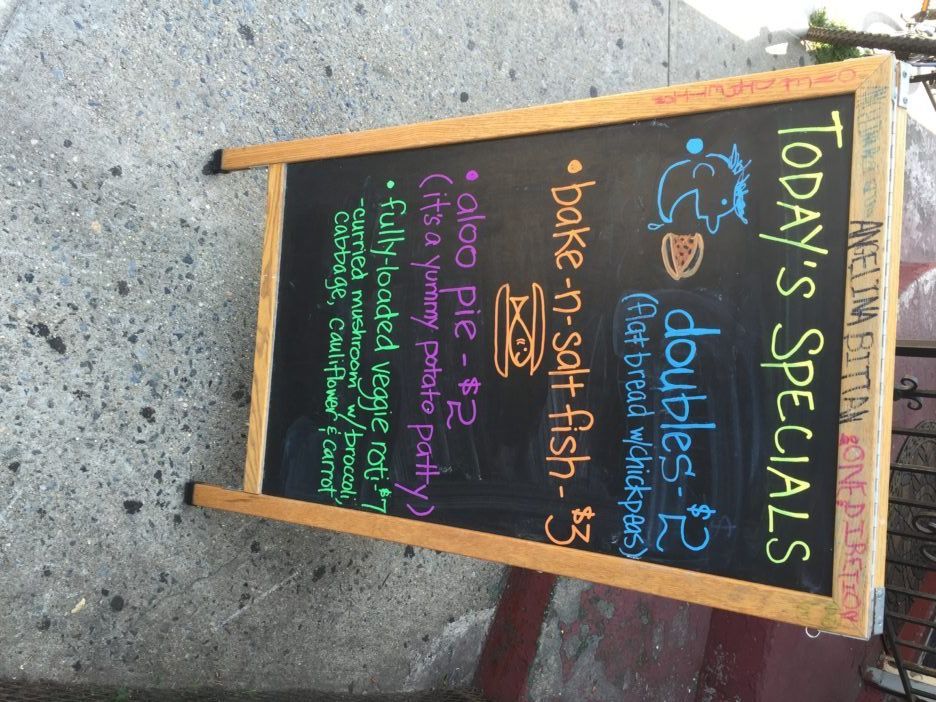 ANGELINA BITTIAN
ONE DIRECTION
TODAY'S SPECIALS
• doubles - $2
(flat bread w/chickpeas)
• bake-n-salt fish - $3
• aloo pie - $2
(it's a yummy potato patty)
• fully-loaded veggie roti: $7
-curried mushroom w/broccoli,
cabbage, cauliflower & carrot